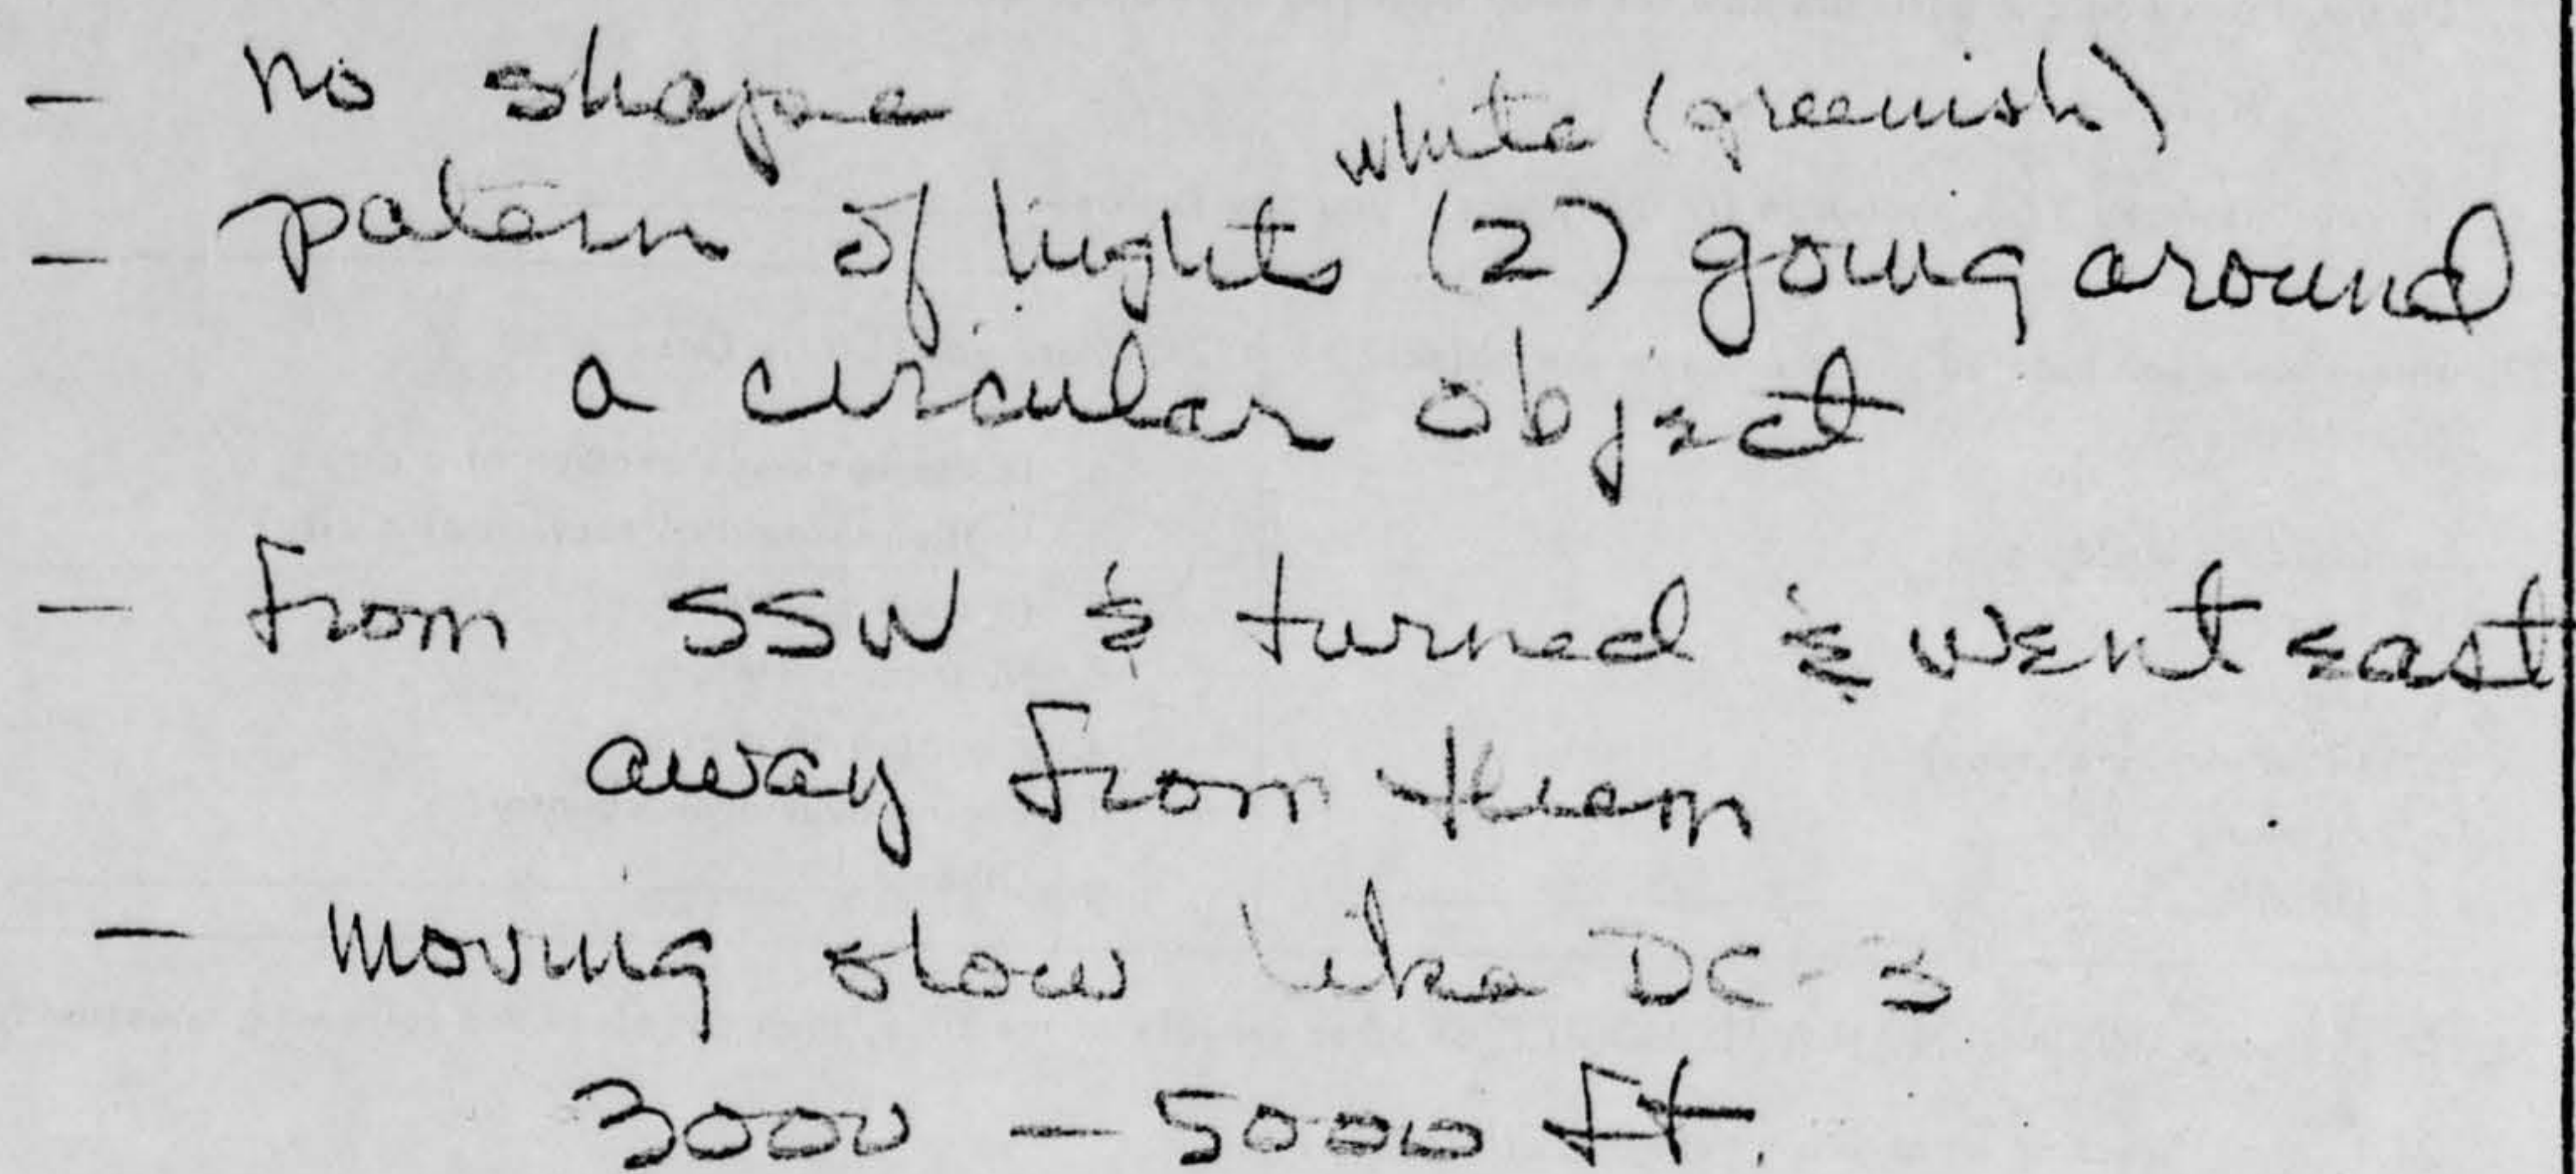 - no shape
white (greenish)
- patern of lights (2) going around
a circular object
- From SSW & turned & went east
away from them
- moving slow like DC-3
3000 - 5000 ft.